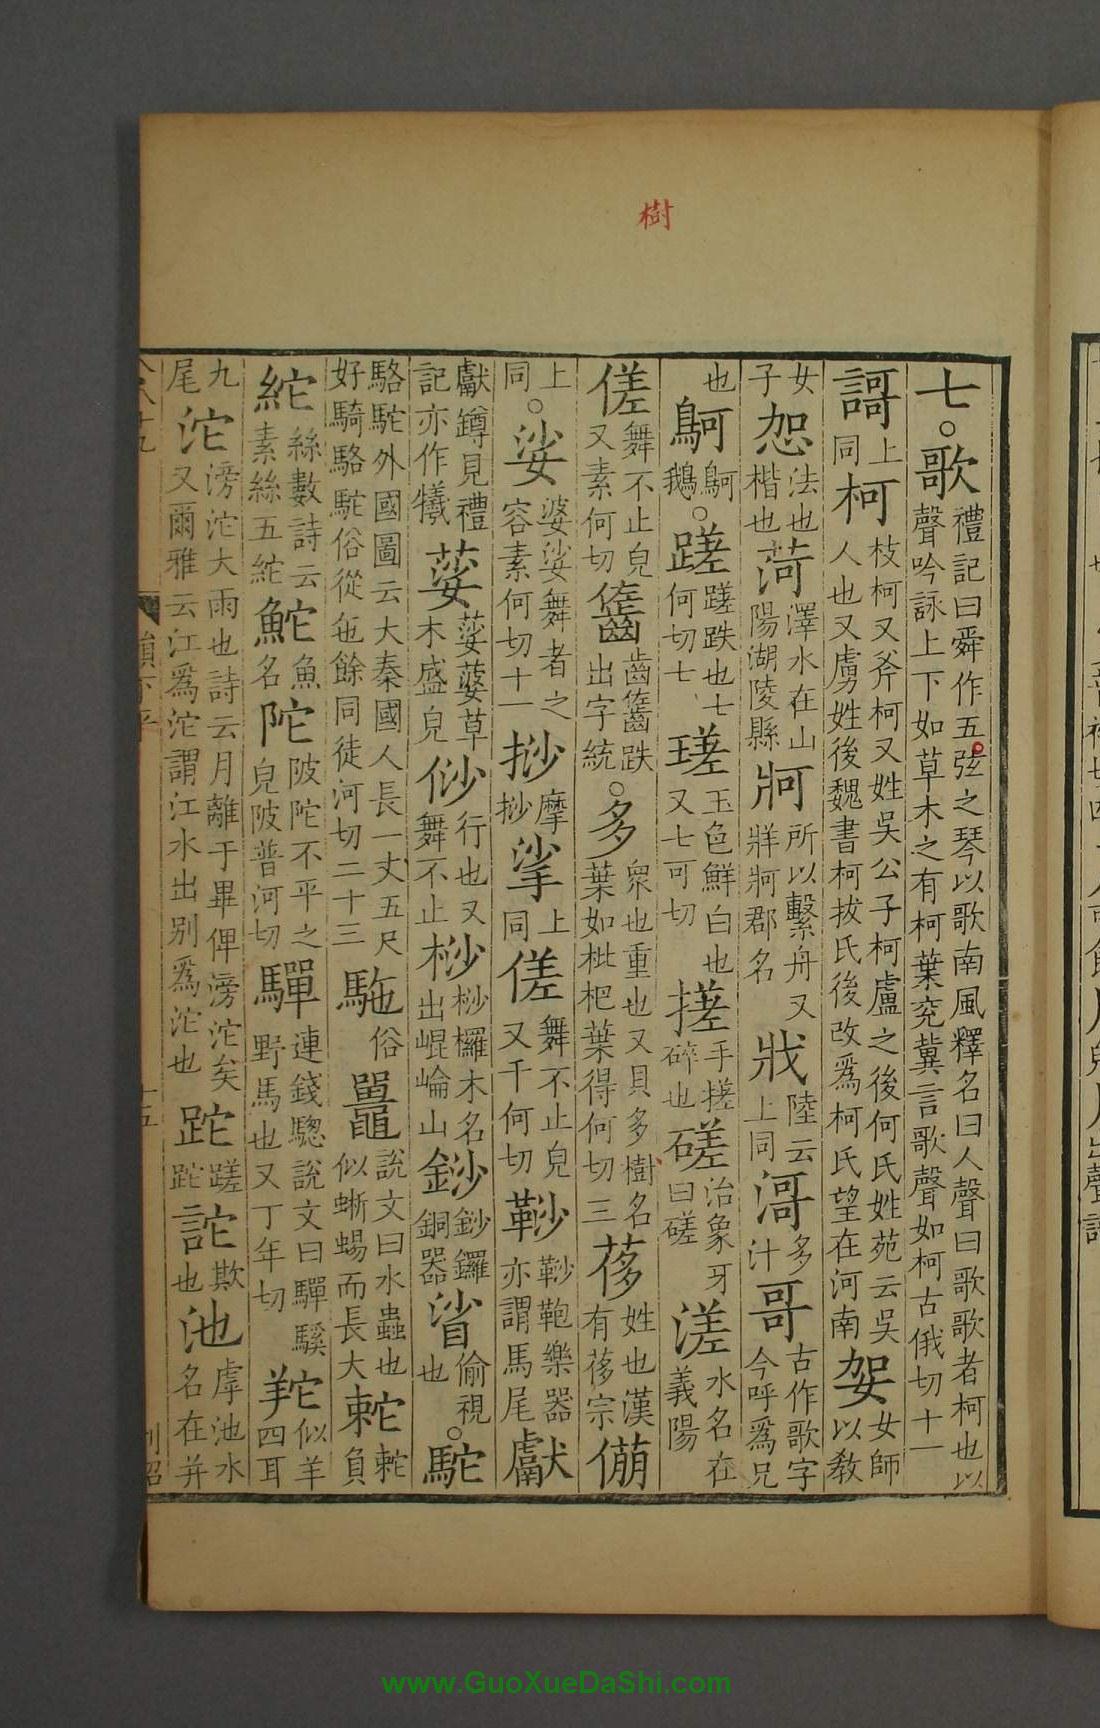 樹
七○歌禮記曰舜作五弦之琴以歌南風釋名曰人聲曰歌歌者柯也以聲吟詠上下如草木之有柯葉兖冀言歌聲如柯古俄切十一
謌上同柯枝柯又斧柯又姓吳公子柯盧之後何氏姓苑云吳人也又虜姓後魏書柯拔氏後改爲柯氏望在河南妿女師以敎
女子㤎法也楷也菏澤水在山陽湖陵縣牁所以繫舟又牂牁郡名戕陸云上同渮多汁哥古作歌字今呼爲兄
也鴚鴚鵝○蹉蹉跌也七何切七瑳玉色鮮白也又七可切搓手搓碎也磋治象牙曰磋溠水名在義陽
傞舞不止皃又素何切齹齒齹跌出字統○多衆也重也又貝多樹名葉如枇杷葉得何切三茤姓也漢有茤宗𠐊
上同○娑婆娑舞者之容素何切十一挱摩挱挲上同傞舞不止皃又千何切䤬䤬鞄樂器亦謂馬尾獻
獻鐏見禮記亦作犧葰葰蔢草木盛皃㑊行也又舞不止桫桫欏木名出崐崘山鈔鈔鑼銅器㸺偷視也○駝
駱駝外國圖云大秦國人長一丈五尺好騎駱駝俗從㐌餘同徒河切二十三駞俗鼉說文曰水蟲也似蜥蜴而長大㸰㸰負
紽絲數詩云素絲五紽鮀魚名陀陂陀不平之皃陂普河切驒連錢驄說文曰驒騱野馬也又丁年切䍫似羊四耳
九尾沱滂沱大雨也詩云月離于畢俾滂沱矣又爾雅云江爲沱謂江水出別爲沱也跎蹉跎詑欺也池虖池水名在并
十五
www.GuoXueDaShi.com